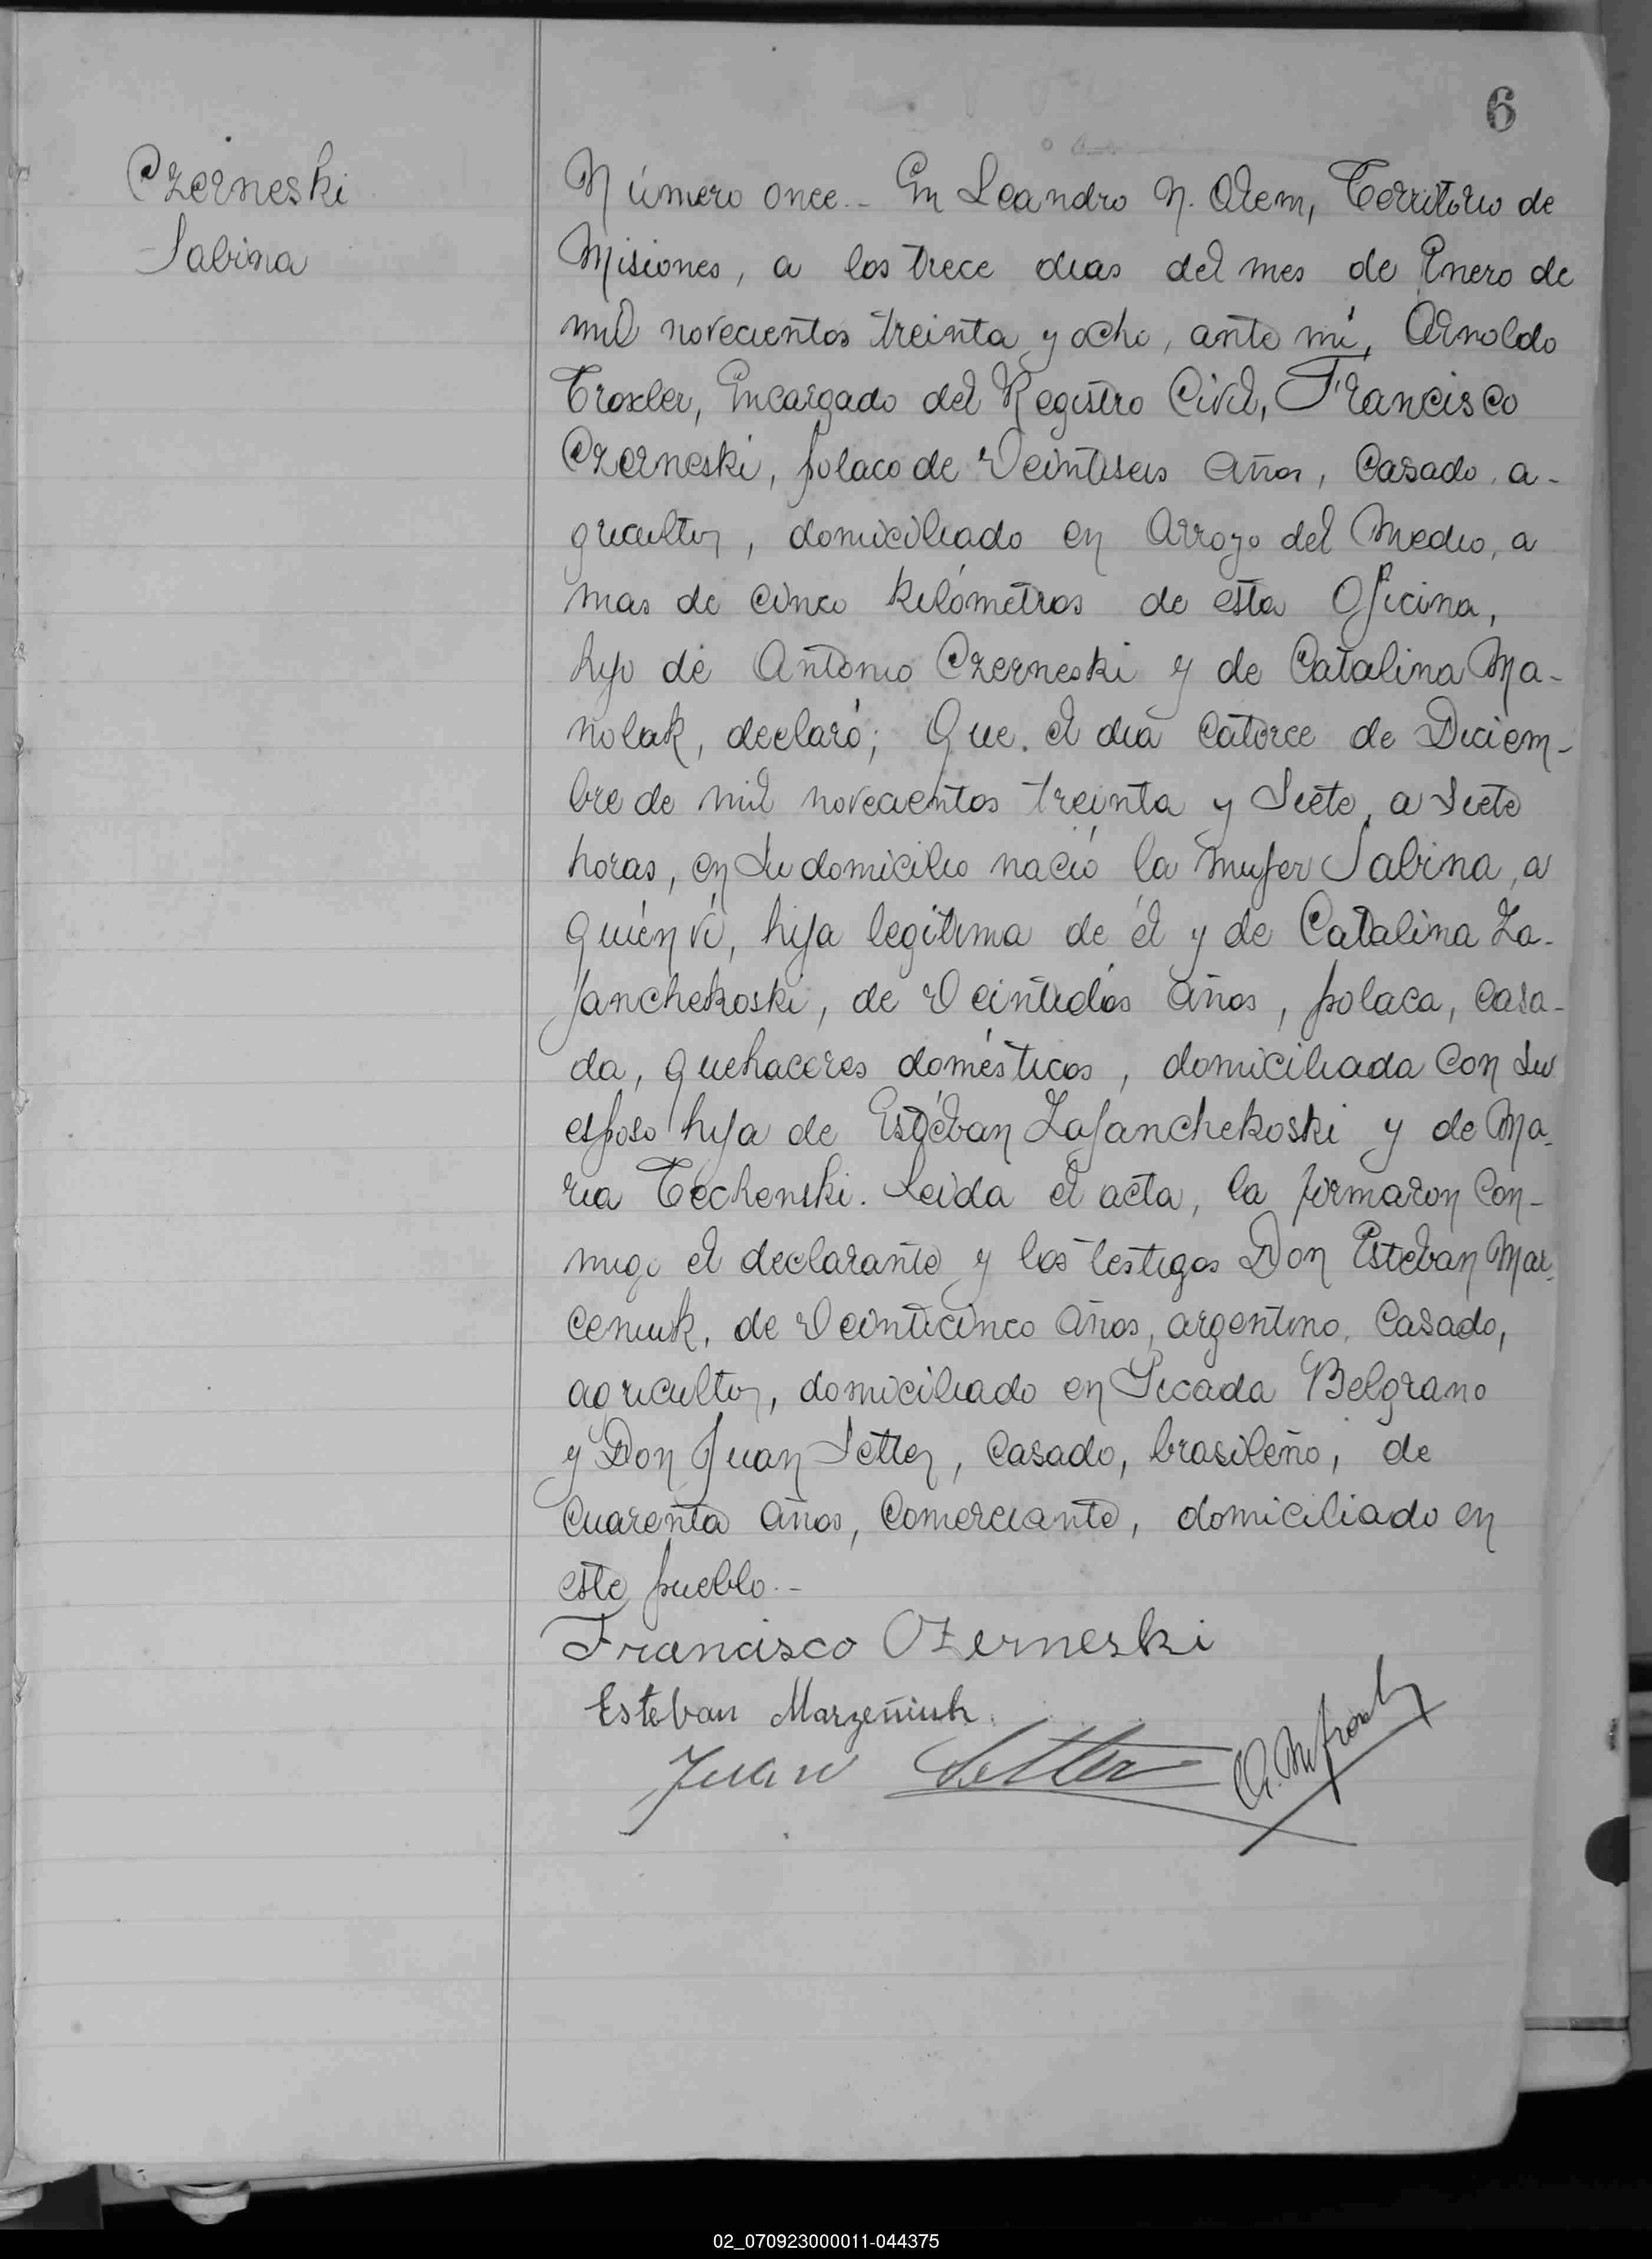 6
Czerneski
Sabina
Número once.- En Leandro N. Alem, Territorio de
Misiones, a los trece dias del mes de Enero de
mil novecientos treinta y ocho, ante mí, Arnoldo
Troxler, Encargado del Registro Civil, Francisco
Czerneski, polaco de veintiseis años, casado, a-
gricultor, domiciliado en Arroyo del Medio, a
mas de cinco kilómetros de esta Oficina,
hijo de Antonio Czerneski y de Catalina Ma-
nolak, declaró; Que. el día catorce de Diciem-
bre de mil novecientos treinta y siete, a siete
horas, en su domicilio nació la mujer Sabina, a
quién ví, hija legítima de él y de Catalina Za-
janchekoski, de veintidós años, polaca, casa-
da, quehaceres domésticos, domiciliada con su
esposo hija de Estéban Zajanchekoski y de Ma-
ria Techenski. Leida el acta, la firmaron con-
migo el declarante y los testigos Don Esteban Mar-
ceniuk, de veinticinco años, argentino, casado,
agricultor, domiciliado en Picada Belgrano
y Don Juan Setter, casado, brasileño, de
cuarenta años, comerciante, domiciliado en
este pueblo.-
Francisco Czerneski
Esteban Marzeniuk
Juan Setter
02_070923000011-044375